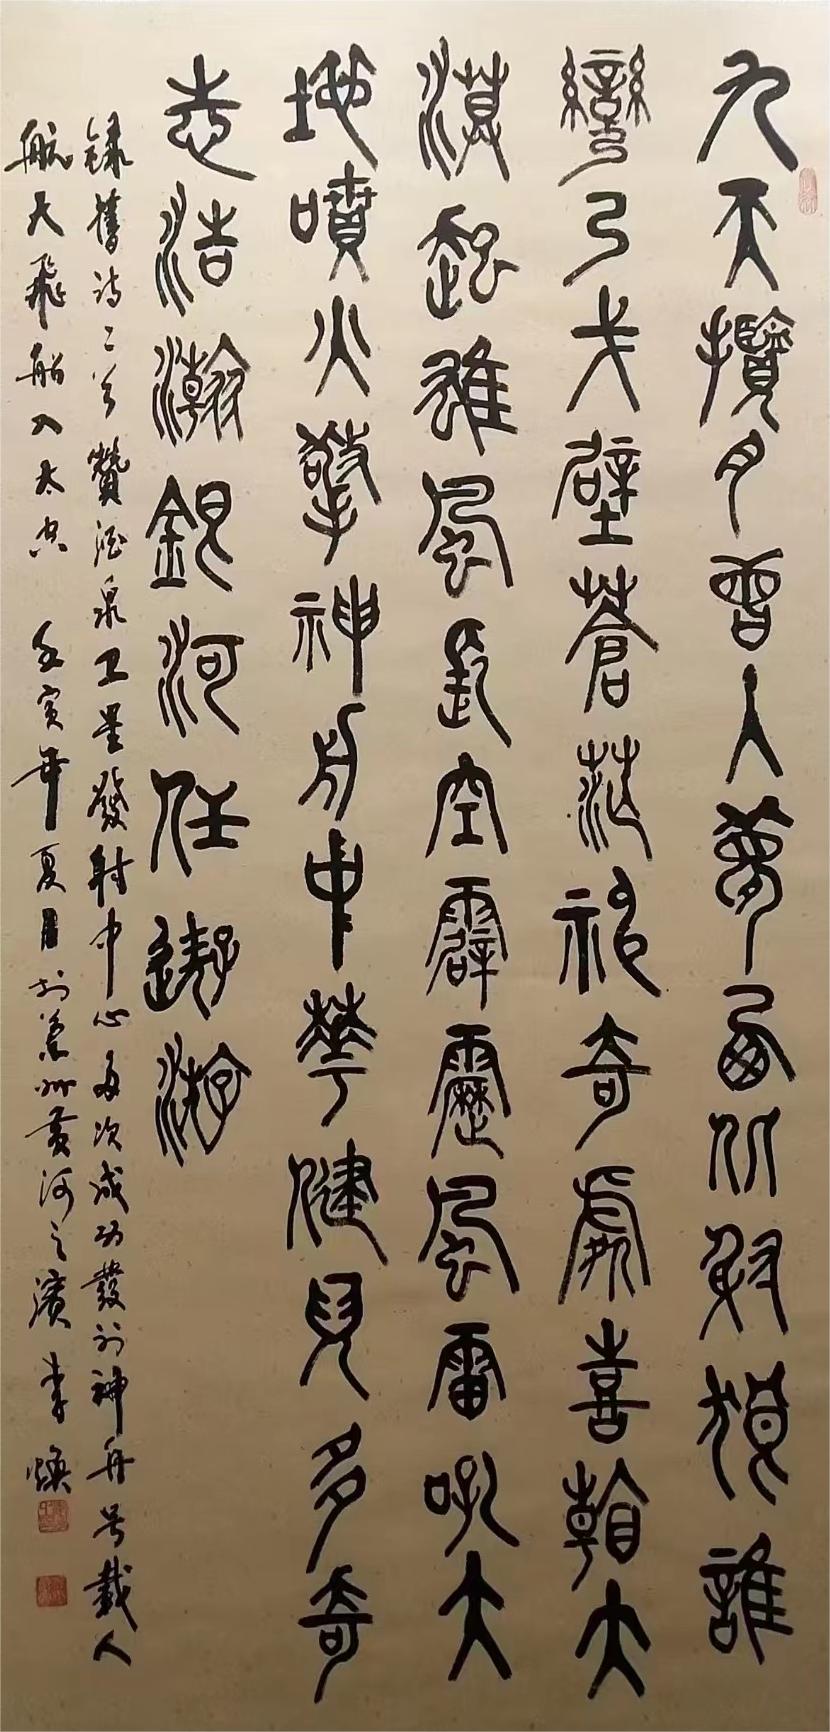 九天攬月曾人夢西北射狼誰
彎弓戈壁蒼茫神奇處喜看大
漠起雄風長空霹靂風雷吼大
地噴火擎神舟中華健兒多奇
志浩瀚銀河任遨游
錄舊詩二首贊酒泉卫星發射中心多次成功發射神舟号載人
航天飛船入太空 壬寅年夏月於蘭州黃河之濱 李煥